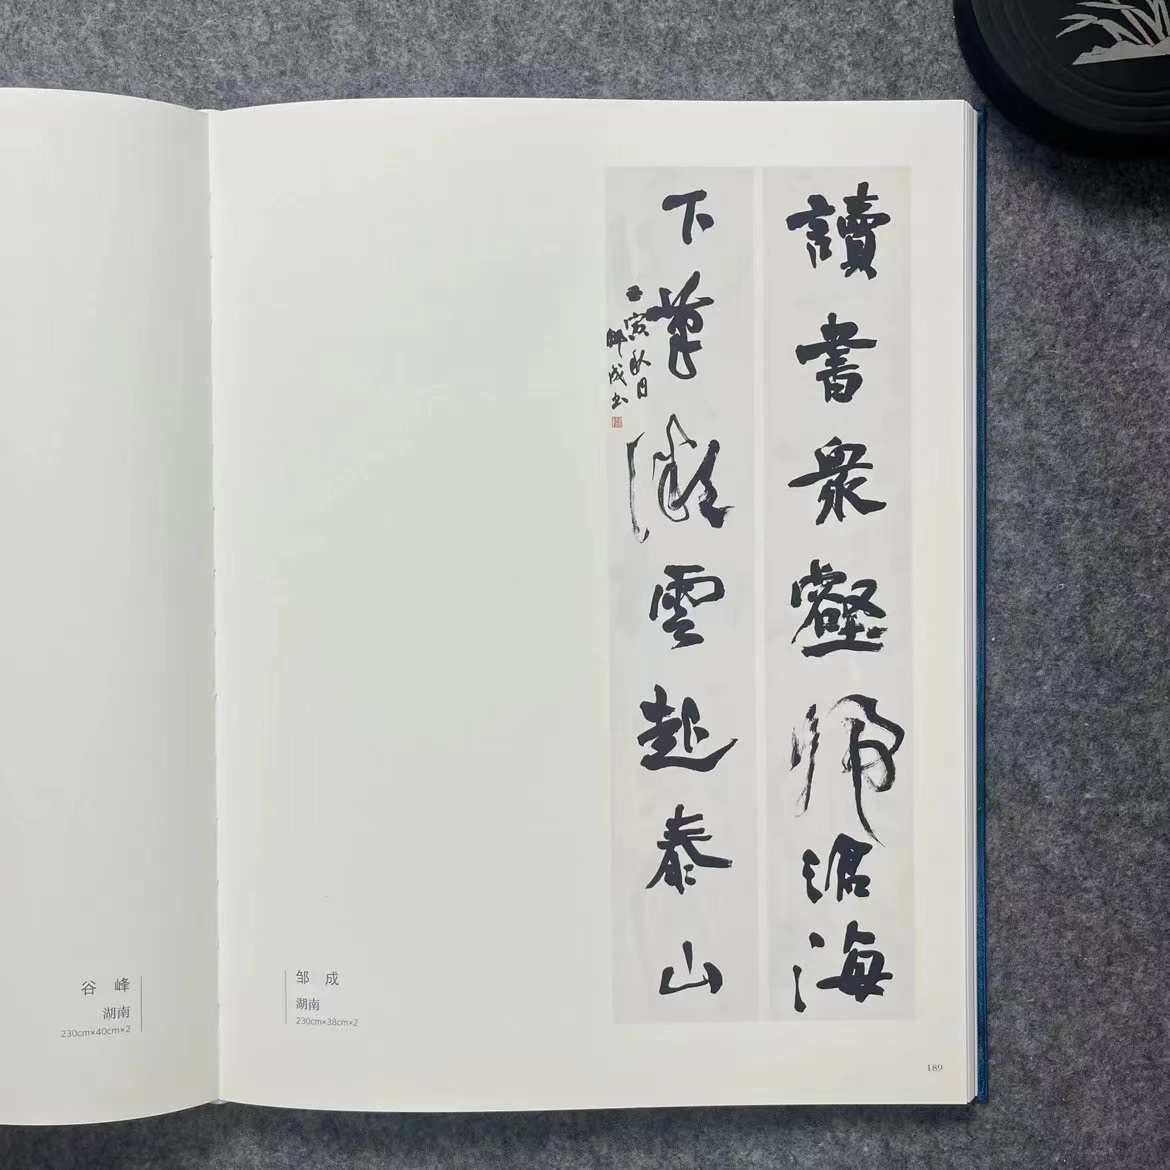 谷 峰
湖南
230cm×40cm×2
邹 成
湖南
230cm×38cm×2
讀書衆壑歸滄海
下筆微雲起泰山
壬寅秋日
鄒成書
189